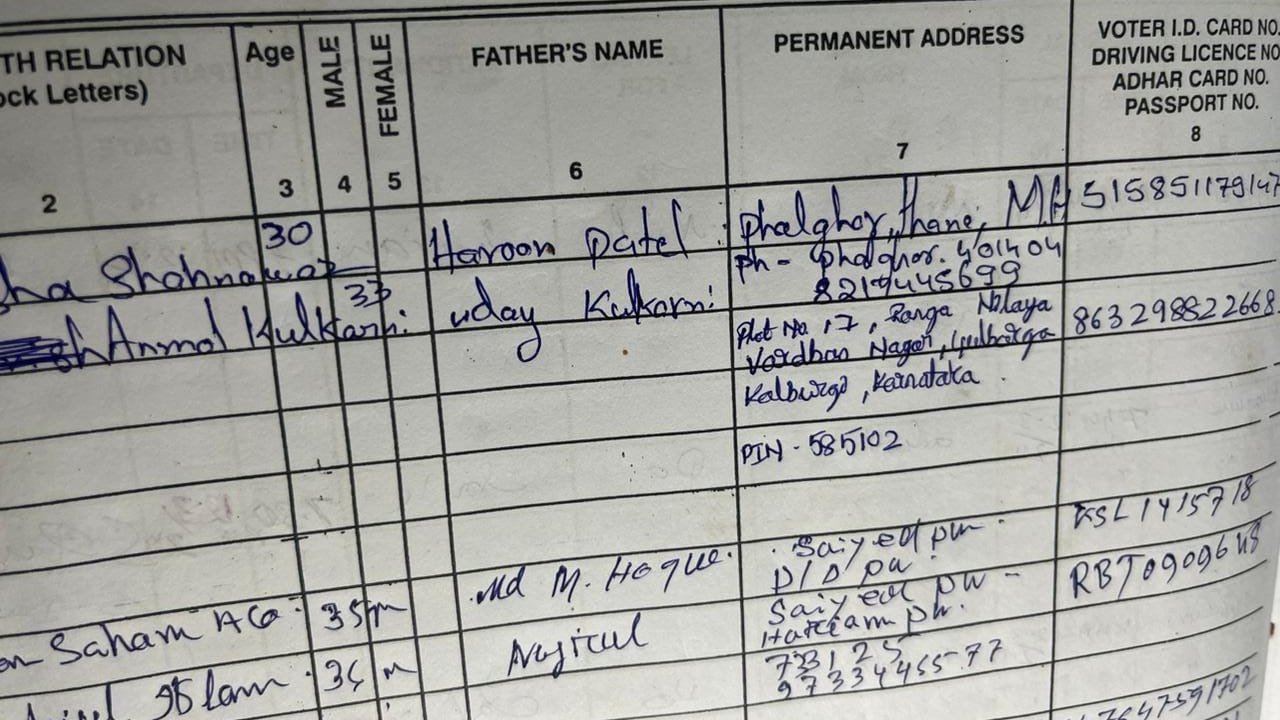 TH RELATION
ock Letters)
Age
MALE
FEMALE
FATHER'S NAME
PERMANENT ADDRESS
VOTER I.D. CARD NO.
DRIVING LICENCE NO
ADHAR CARD NO.
PASSPORT NO.
2 3 4 5 6 7 8
ha Shahnawaz 30 Haroon Patel phalghar, thane, MH 515851179147
ph- phalghar. 401404
8219445699
Anmol Kulkarni 33 uday Kulkarni Plot No 17, Ranga Nilaya 863298822668
Vardhan Nagar, Gulbarga
Kalburgi, Karnataka.
PIN - 585102
Md M. Hoque. Saiyed pur KSL1415718
Saham 35 m Saiyed pur - RBT0909648
Hatciam ph.
Islam 35 m Najrul 731125
9733446577